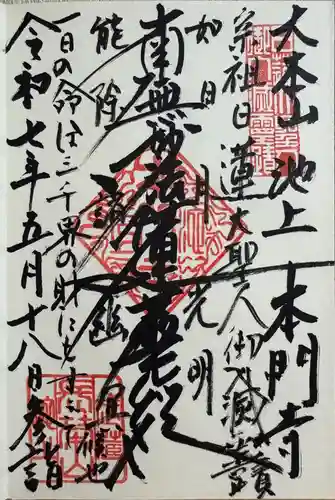 大本山 池上 本門寺
宗祖日蓮大聖人御入滅之霊蹟
如日月光明
能除諸幽冥
南無妙法蓮華経
一日の命は三千界の財にもすぎて候也
令和七年五月十八日参詣